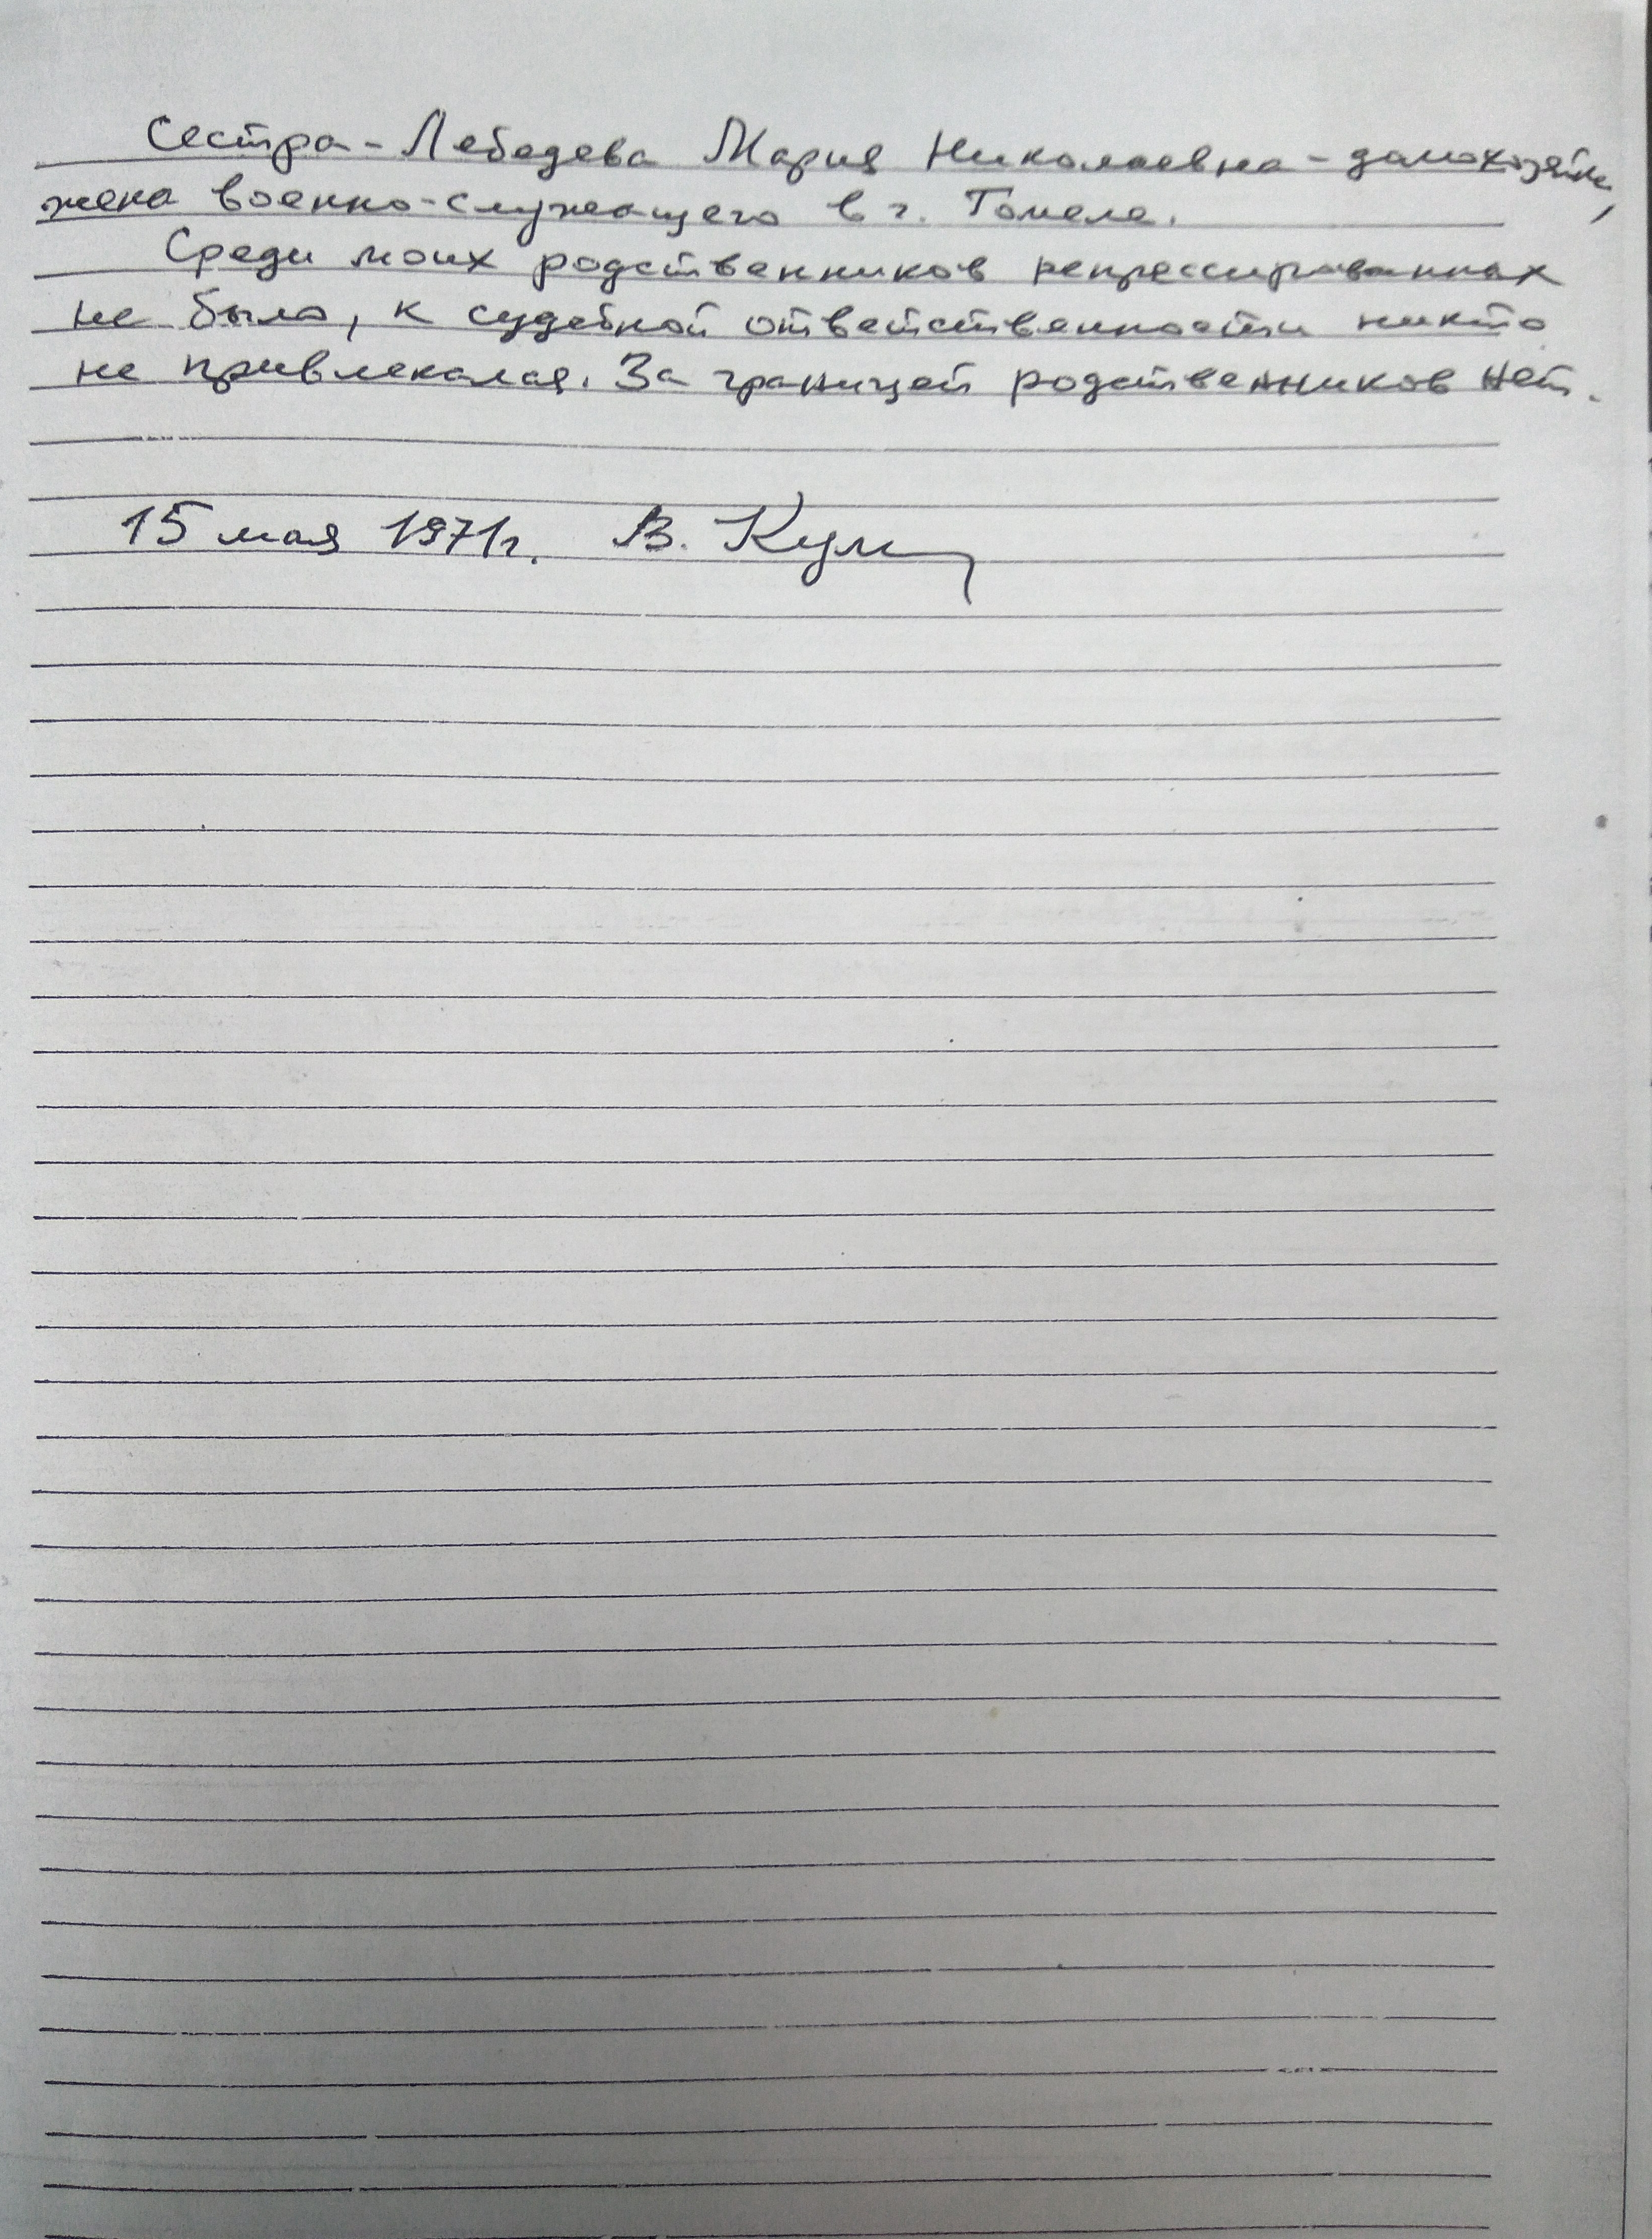 Сестра - Лебедева Мария Николаевна - домохозяйка,
жена военно-служащего в г. Гомеле.
Среди моих родственников репрессированных
не было, к судебной ответственности никто
не привлекался. За границей родственников нет.
15 мая 1971г. В.